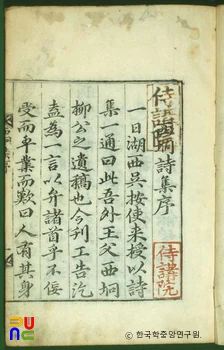 西坰詩集序
侍講院
一日湖西吳按使來授以詩
集一通曰此吾外王父西坰
柳公之遺稿也今刊工告汔
盍爲一言以弁諸首乎不佞
受而卒業而歎曰人有其身
ⓒ 한국학중앙연구원